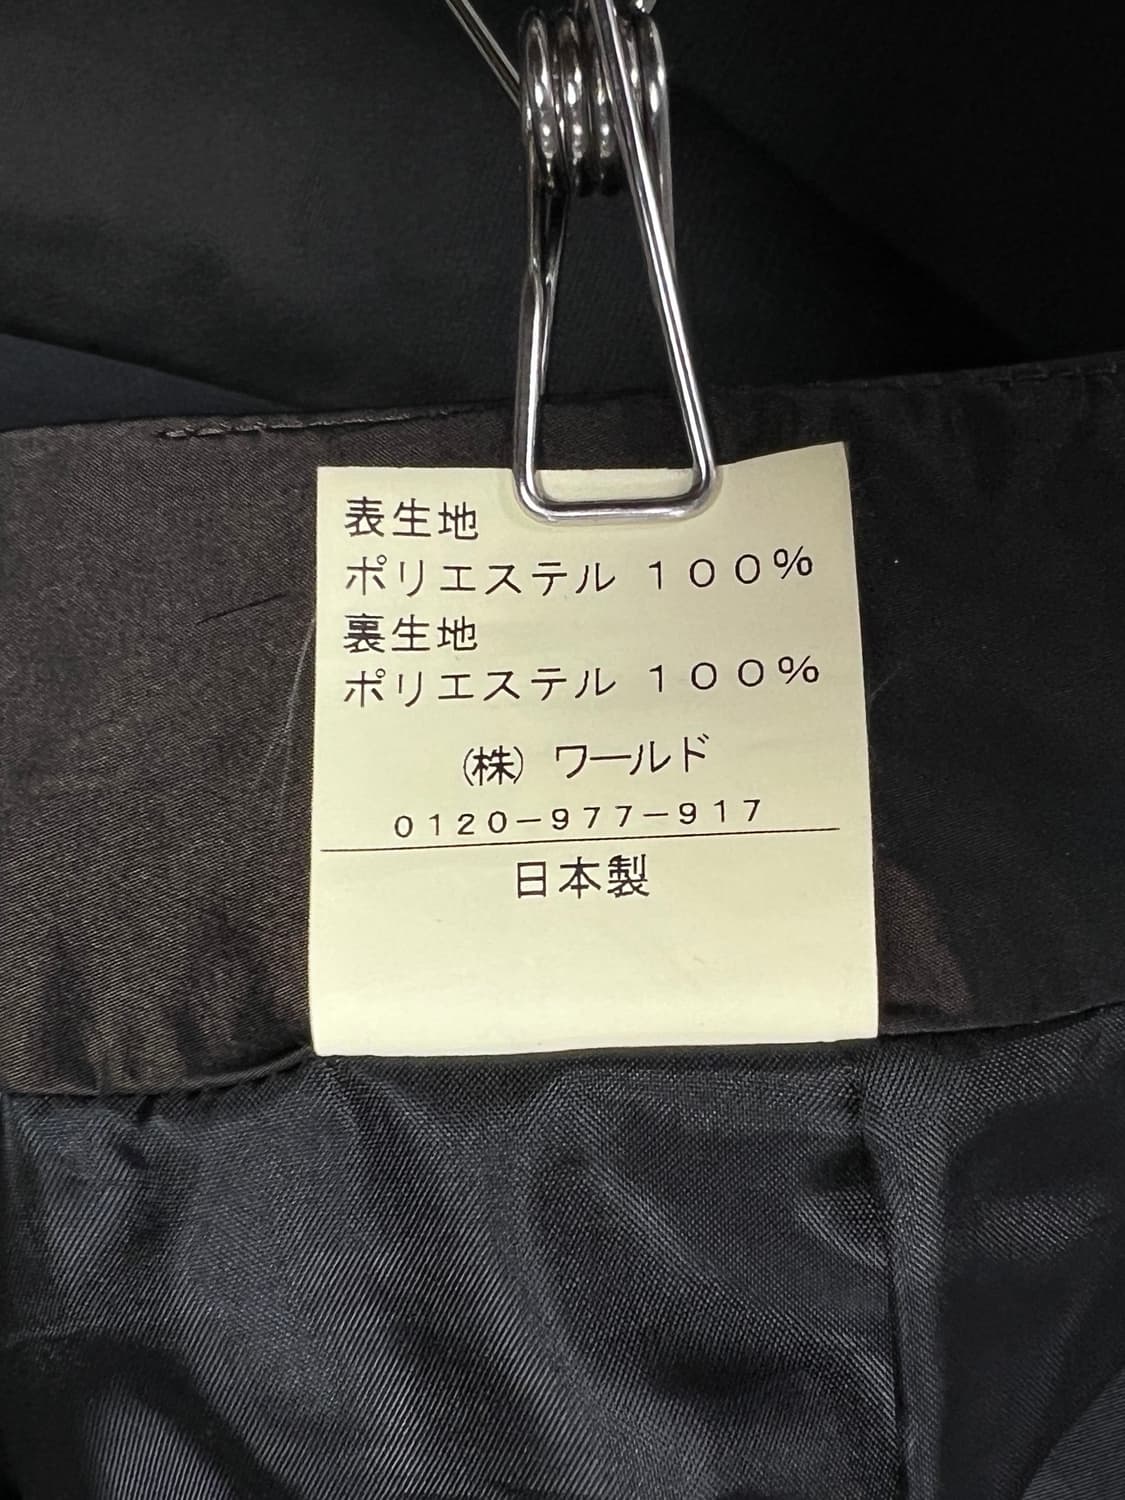 表生地
ポリエステル １００％
裏生地
ポリエステル １００％
(株) ワールド
０１２０－９７７－９１７
日本製